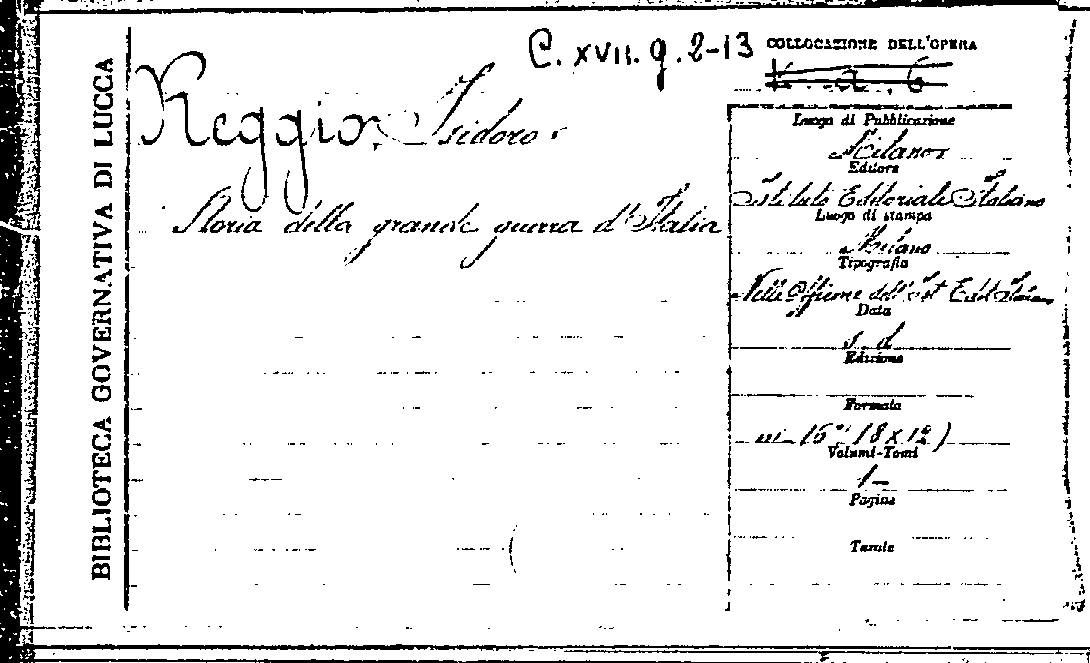 BIBLIOTECA GOVERNATIVA DI LUCCA
C. XVII. g. 2-13
COLLOCAZIONE DELL'OPERA
Reggio, Isidoro.
Storia della grande guerra d'Italia
Luogo di Pubblicazione
Milano
Editore
Istituto Editoriale Italiano
Luogo di stampa
Milano
Tipografia
Nelle Officine dell'Ist Edit Italiano
Data
s. d.
Edizione
Formato
in-16° (18 x 12)
Volumi-Tomi
1-
Pagine
Tavole